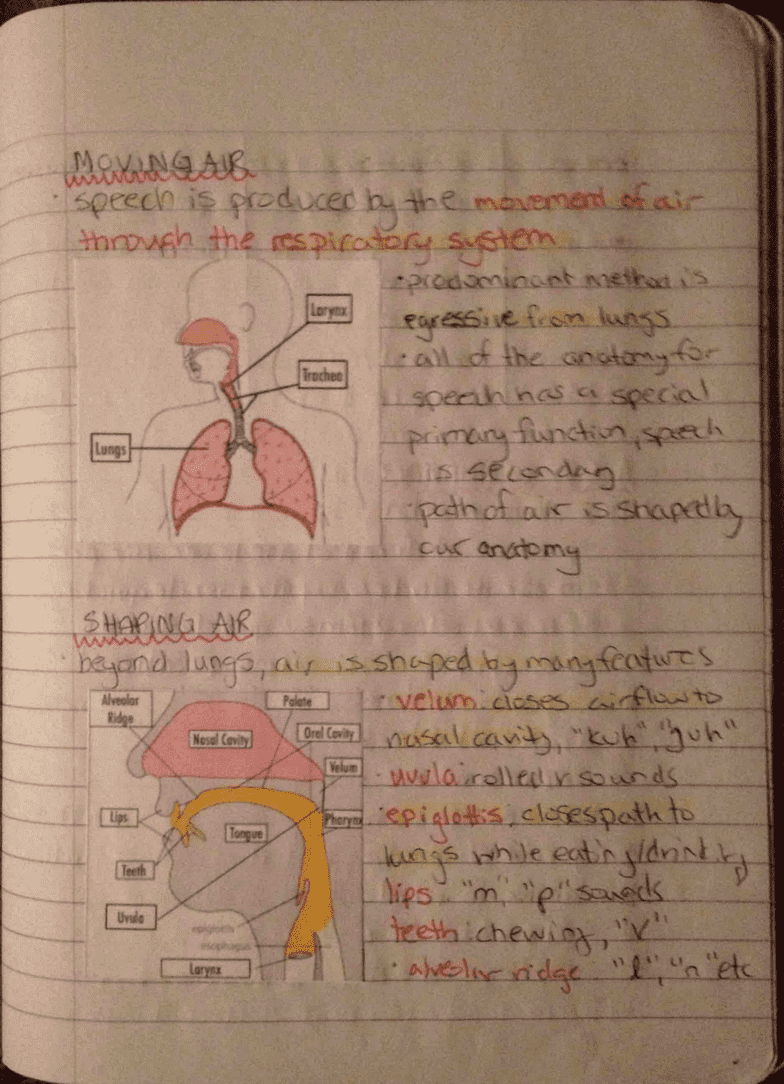 MOVING AIR
· speech is produced by the movement of air
through the respiratory system
Larynx
Trachea
Lungs
· predominant method is
egressive from lungs
· all of the anatomy for
speech has a special
primary function, speech
is secondary
path of air is shaped by
our anatomy
SHAPING AIR
· beyond lungs, air is shaped by many features
Alveolar
Ridge
Palate
Nasal Cavity
Oral Cavity
Velum
Lips
Tongue
Pharynx
Teeth
Uvula
epiglottis
esophagus
Larynx
· velum: closes airflow to
nasal cavity, "kuh", "guh"
· uvula: rolled r sounds
· epiglottis: closes path to
lungs while eating/drinking
lips: "m", "p" sounds
teeth: chewing, "v"
· alveolar ridge: "l", "n" etc